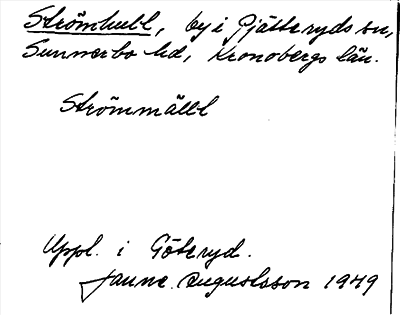 Strömhult, by i Pjätteryds sn,
Sunnerbo hd, Kronobergs län.
Strömmällt
Uppl. i Göteryd.
Janne Augustsson 1949